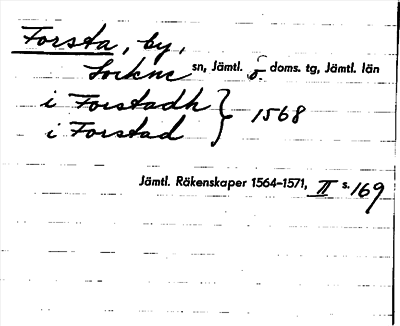 Forsta, by,
Lockne sn, Jämtl. ö. doms. tg, Jämtl. län
i Forstadh } 1568
i Forstad
Jämtl. Räkenskaper 1564-1571, II s. 169